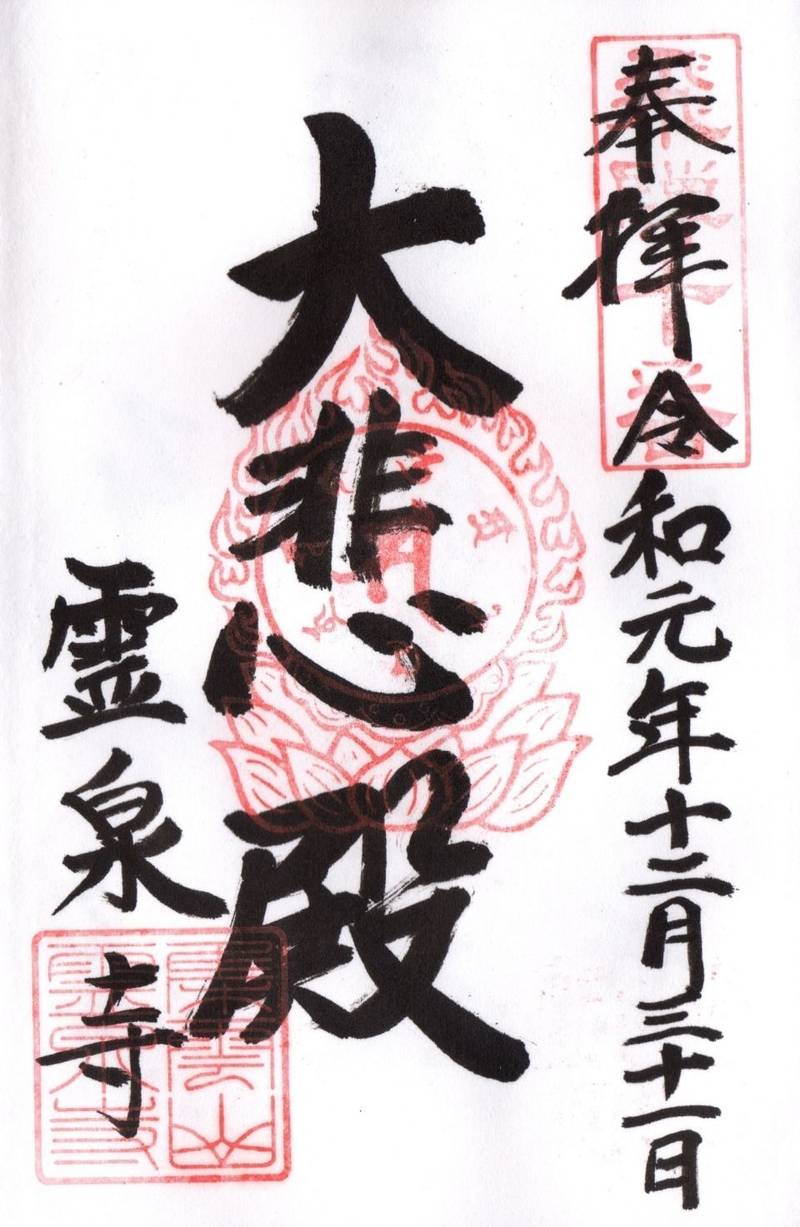 奉拝 令和元年十二月三十一日
大悲心殿
霊泉寺